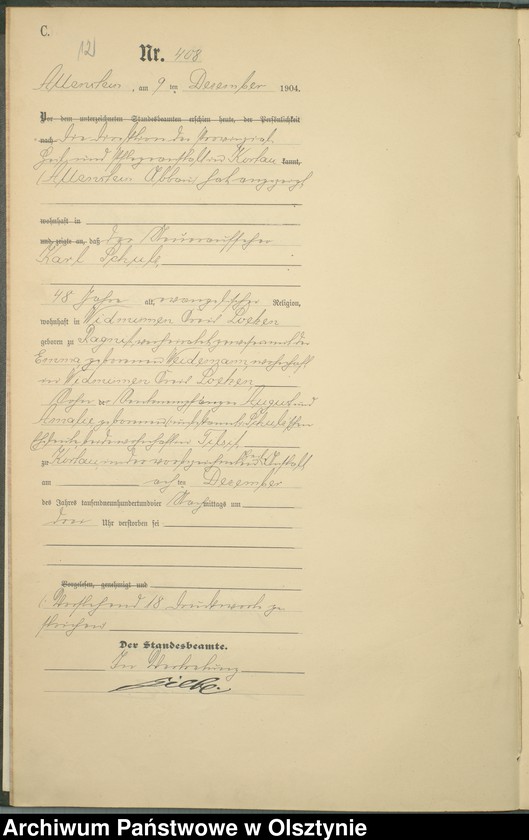 C.
121
Nr. 408
Allenstein, am 9 ten Dezember 1904.
Vor dem unterzeichneten Standesbeamten erschien heute, der Persönlichkeit
nach Die Direktion der Provinzial
Heil und Pflegeanstalt in Kortau kannt,
(Allenstein Abbau) hat angezeigt
wohnhaft in
und zeigte an, daß der Steueraufseher
Karl Schulz
48 Jahre alt, evangelischer Religion,
wohnhaft in Widminnen Kreis Loetzen
geboren zu Ragnit, verheiratet gewesen mit der
Emma geborenen, wohnhaft
in Widminnen Kreis Loetzen
Sohn der August und
Amalie geborenen Schulz'schen
Eheleute, beide wohnhaft in Tilsit
zu Kortau in der vorbezeichneten Anstalt
am acht ten Dezember
des Jahres tausendneunhundertundvier Nachmittags um
drei Uhr verstorben sei
Vorgelesen, genehmigt und
(Vorstehend 18 Druckworte ge-
strichen
Der Standesbeamte.
In Vertretung
Archiwum Państwowe w Olsztynie